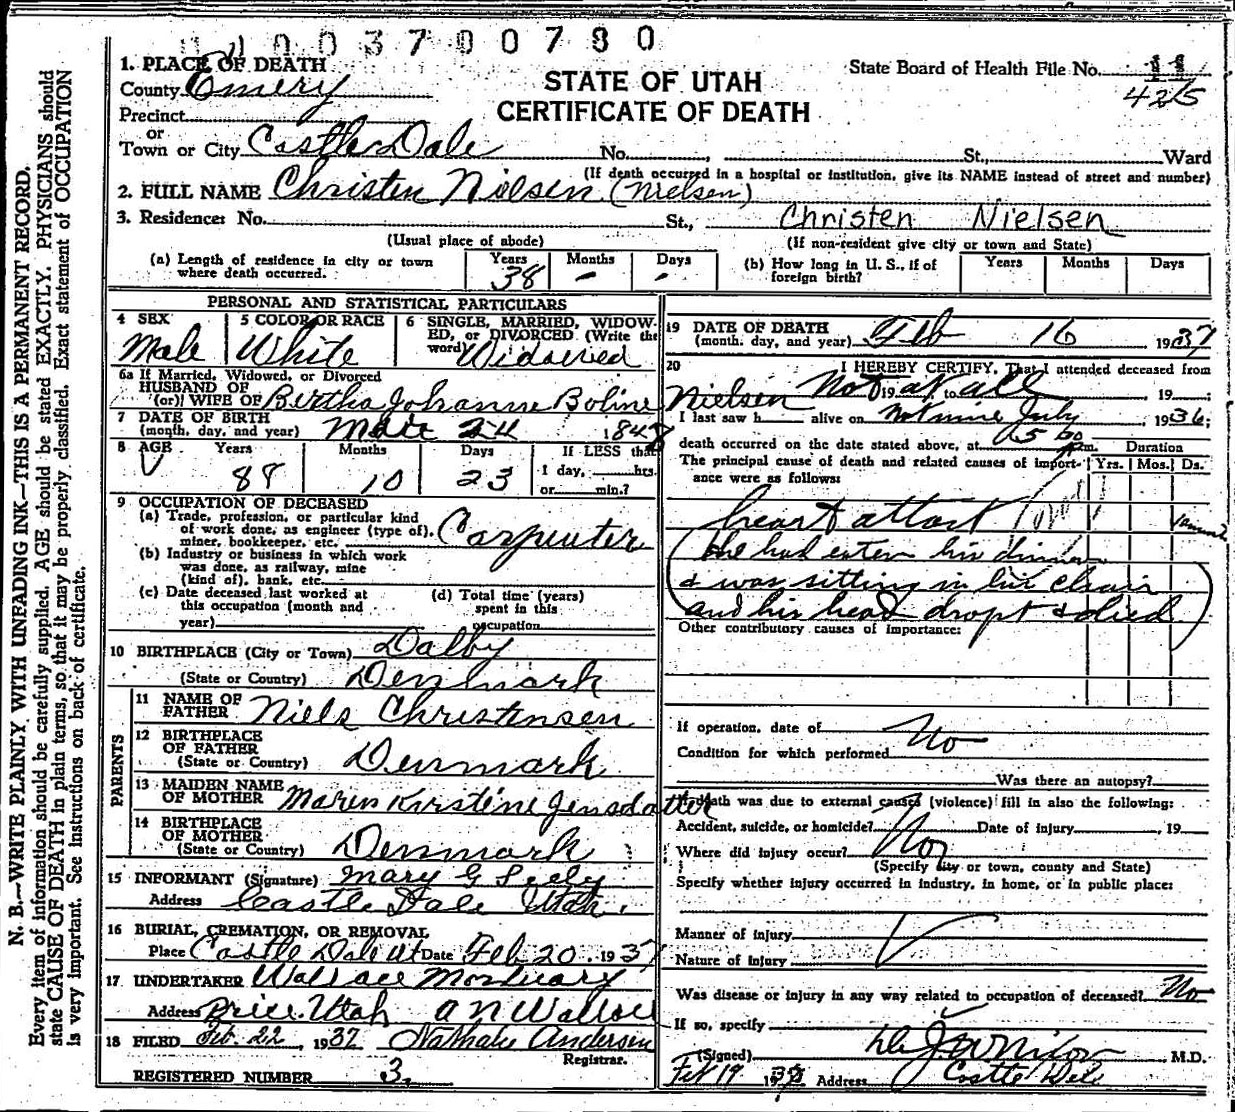 0003700780
1. PLACE OF DEATH
County Emery
STATE OF UTAH
CERTIFICATE OF DEATH
State Board of Health File No. 11
42/5
Precinct
or
Town or City Castle Dale No. , St., Ward
(If death occurred in a hospital or institution, give its NAME instead of street and number)
2. FULL NAME Christen Nielsen (Nielsen)
3. Residence: No. St., Christen Nielsen
(Usual place of abode) (If non-resident give city or town and State)
(a) Length of residence in city or town where death occurred. Years 38 Months - Days -
(b) How long in U. S., if of foreign birth? Years Months Days
PERSONAL AND STATISTICAL PARTICULARS
4 SEX Male
5 COLOR OR RACE White
6 SINGLE, MARRIED, WIDOW-
ED, or DIVORCED (Write the
word) Widowed
6a If Married, Widowed, or Divorced
HUSBAND OF
(or) WIFE OF Bertha Johanne Boline Nielsen
7 DATE OF BIRTH
(month, day, and year) 24 184
8 AGE Years 88 Months 10 Days 23 If LESS than
1 day, hrs.
or min.?
9 OCCUPATION OF DECEASED
(a) Trade, profession, or particular kind
of work done, as engineer (type of),
miner, bookkeeper, etc. Carpenter
(b) Industry or business in which work
was done, as railway, mine
(kind of), bank, etc.
(c) Date deceased last worked at
this occupation (month and
year)
(d) Total time (years)
spent in this
occupation
10 BIRTHPLACE (City or Town) Dalby
(State or Country) Denmark
PARENTS
11 NAME OF
FATHER Niels Christensen
12 BIRTHPLACE
OF FATHER
(State or Country) Denmark
13 MAIDEN NAME
OF MOTHER Maren Kirstine Jensdatter
14 BIRTHPLACE
OF MOTHER
(State or Country) Denmark
15 INFORMANT (Signature) Mary G Seely
Address Castle Dale Utah.
16 BURIAL, CREMATION, OR REMOVAL
Place Castle Dale Ut Date Feb 20, 1937
17 UNDERTAKER Wallace Mortuary
Address Price, Utah A N Wallace
18 FILED Feb. 22, 1937 Nathalie Andersen
Registrar.
REGISTERED NUMBER 3.
19 DATE OF DEATH
(month, day, and year) Feb 16 1937
20 I HEREBY CERTIFY, That I attended deceased from
Not at all 19 , to 19 ;
I last saw h alive on July, 1936;
death occurred on the date stated above, at m.
The principal cause of death and related causes of import-
ance were as follows:
Duration
Yrs. Mos. Ds.
heart attact
(he had eaten his dinner
& was sitting in his chair
and his head dropt & died)
Other contributory causes of importance:
If operation, date of No
Condition for which performed
Was there an autopsy?
death was due to external causes (violence) fill in also the following:
Accident, suicide, or homicide? No Date of injury , 19
Where did injury occur? No
(Specify city or town, county and State)
Specify whether injury occurred in industry, in home, or in public place:
Manner of injury
Nature of injury
Was disease or injury in any way related to occupation of deceased? No
If so, specify
(Signed) M.D.
Feb 19 1937 Address Castle Dale
N. B.—WRITE PLAINLY WITH UNFADING INK—THIS IS A PERMANENT RECORD.
Every item of information should be carefully supplied. AGE should be stated EXACTLY. PHYSICIANS should
state CAUSE OF DEATH in plain terms, so that it may be properly classified. Exact statement of OCCUPATION
is very important. See instructions on back of certificate.